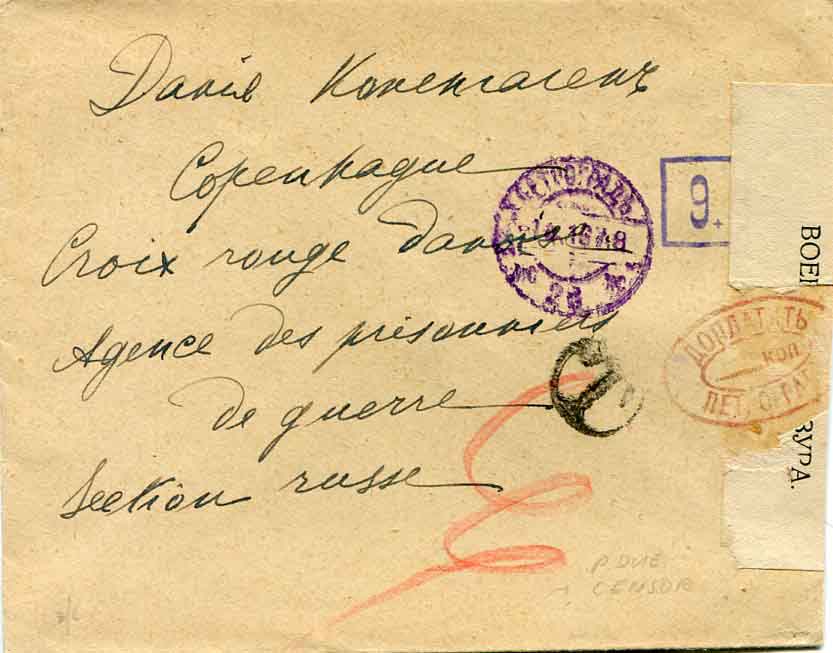 Данiя Копенгагенъ
Copenhague
Croix rouge danoise
Agence des prisonniers
de guerre
Section russe
ПЕТРОГРАДЪ
28
9.
ДОПЛАТИТЬ
коп
ПЕТРОГРАД
T
ВОЕН
ЗУРА.
P DUE
+ CENSOR